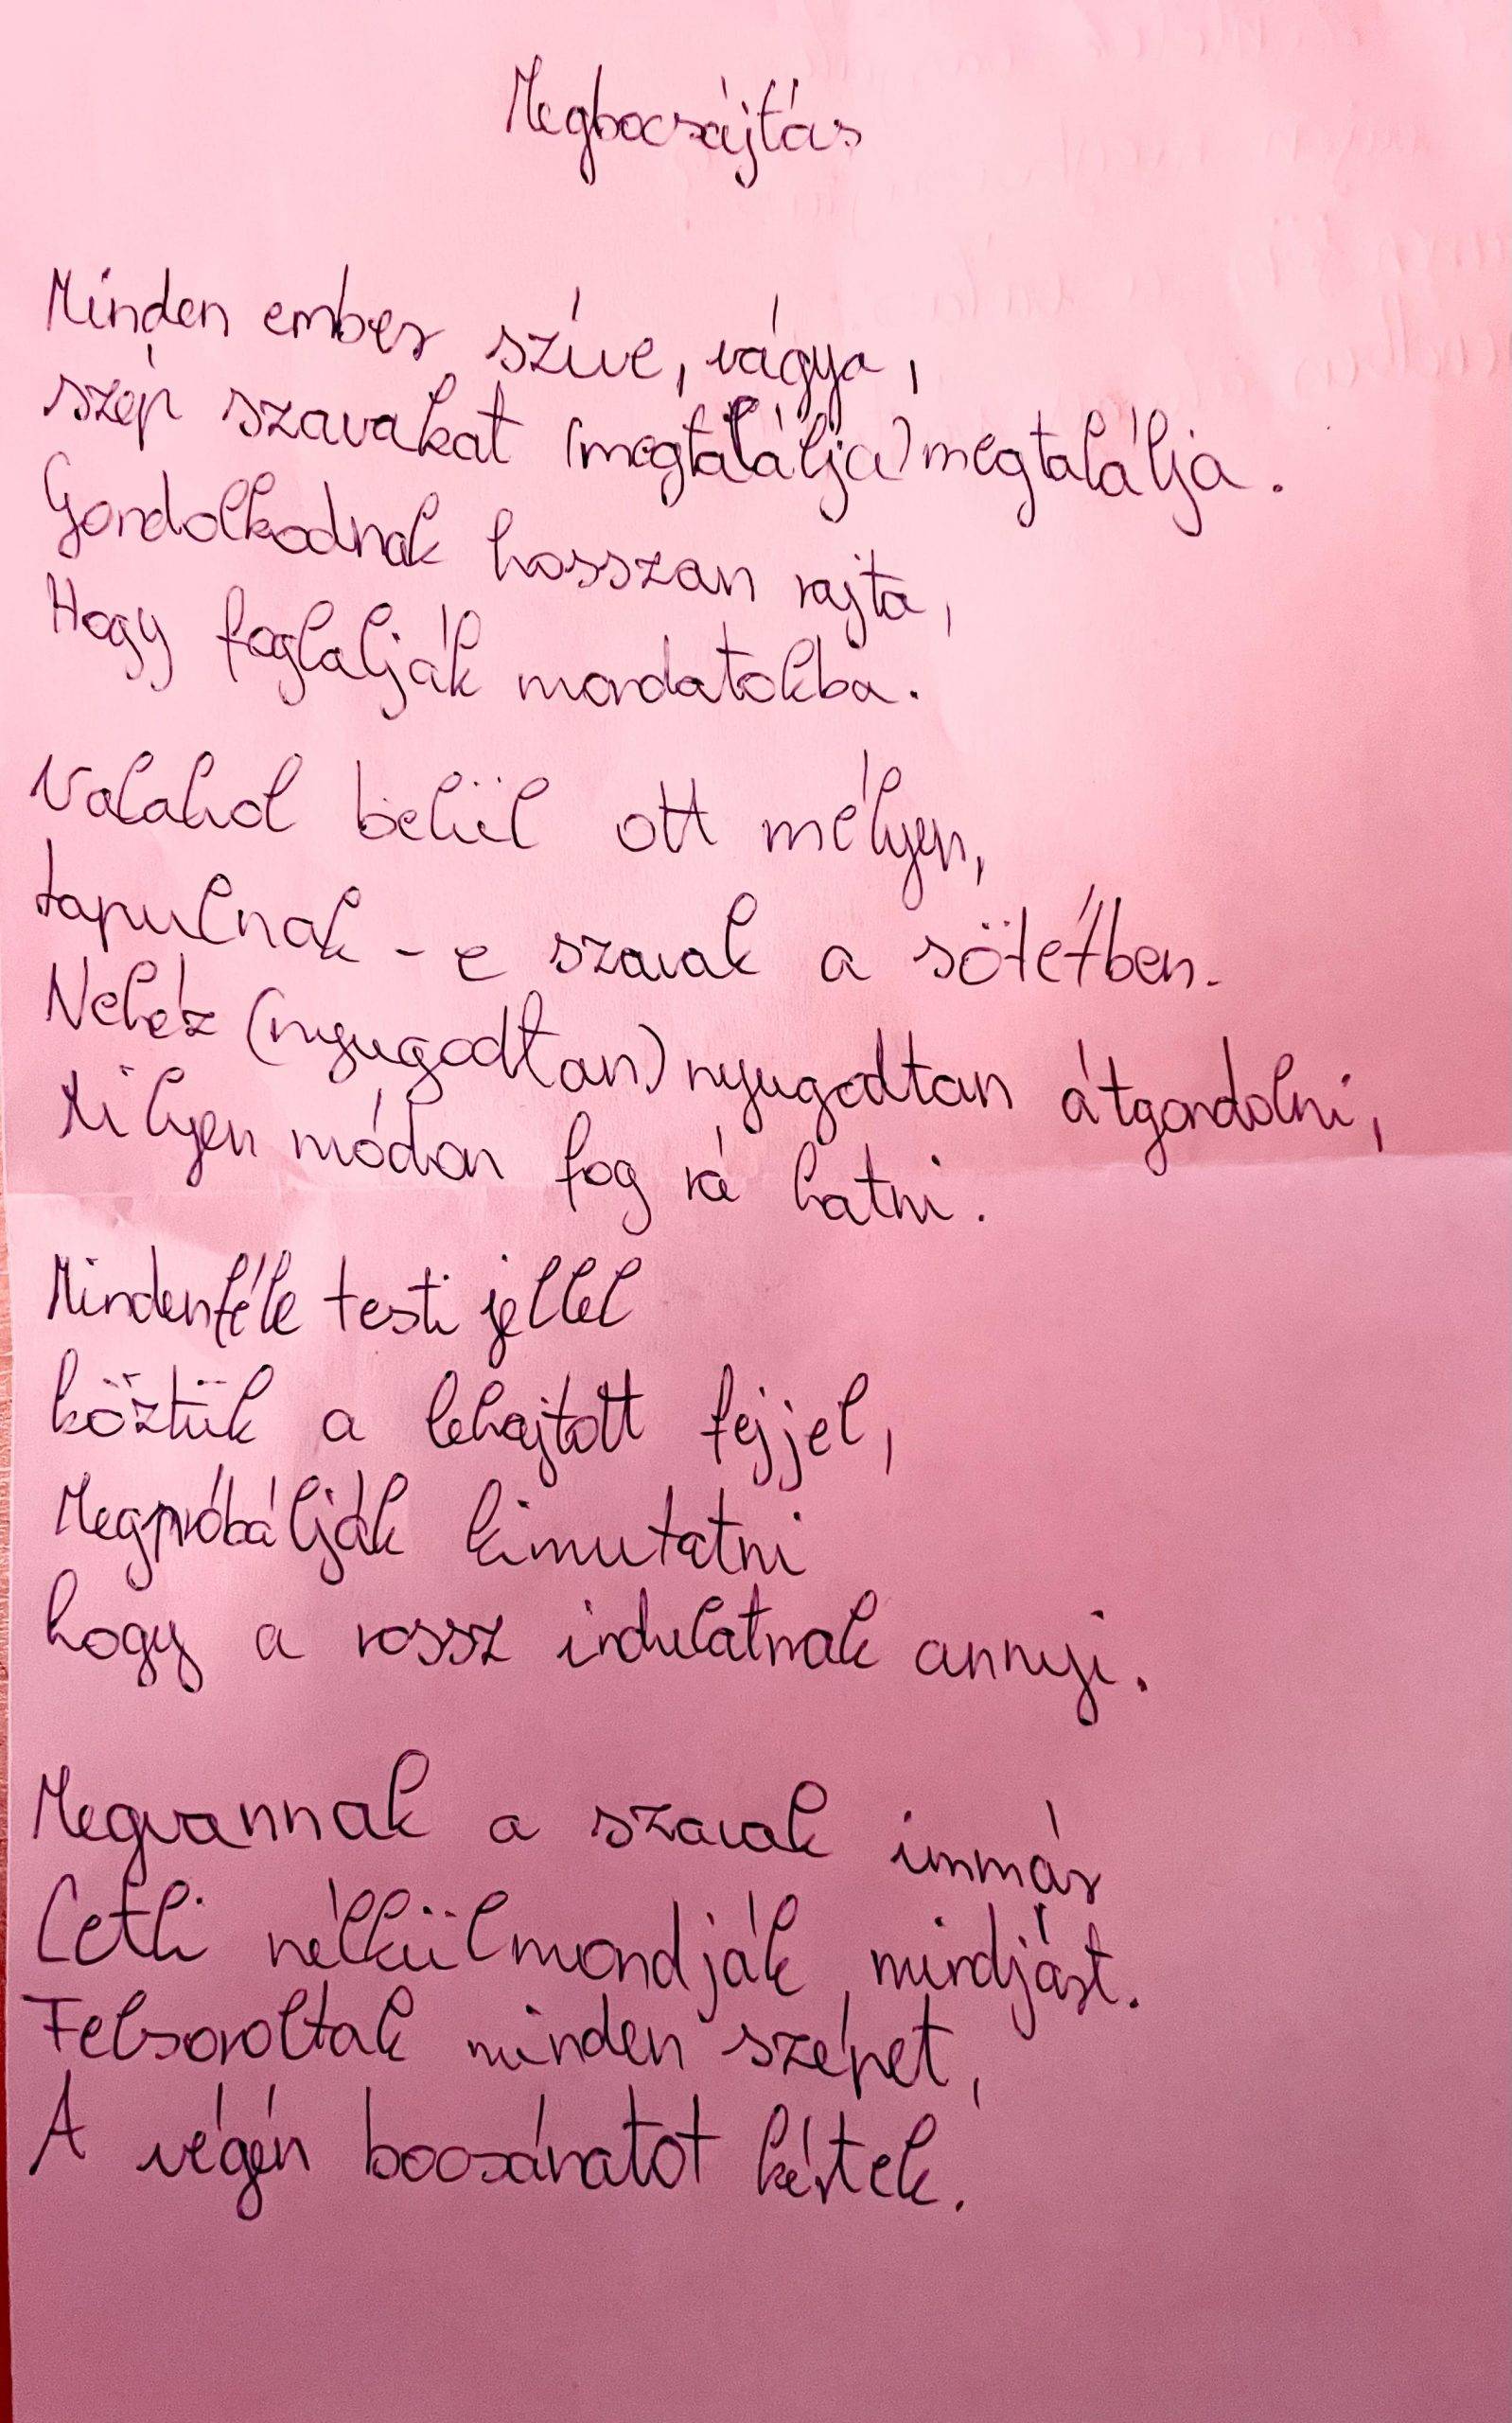 Megbocsájtás
Minden ember szíve, vágya,
szép szavakat (megtalálja) megtalálja.
Gondolkodnak hosszan rajta,
Hogy foglalják mondatokba.
Valahol belül ott mélyen,
tapulnak-e szavak a sötétben.
Nehéz (nyugodtan) nyugodtan átgondolni,
Milyen módon fog rá hatni.
Mindenféle testi jellel
köztük a lehajtott fejjel,
Megpróbálják kimutatni
hogy a rossz indulatnak annyi.
Megvannak a szavak immár
Cetli nélkül mondják mindjárt.
Felsoroltak minden szépet,
A végén bocsánatot kértek.